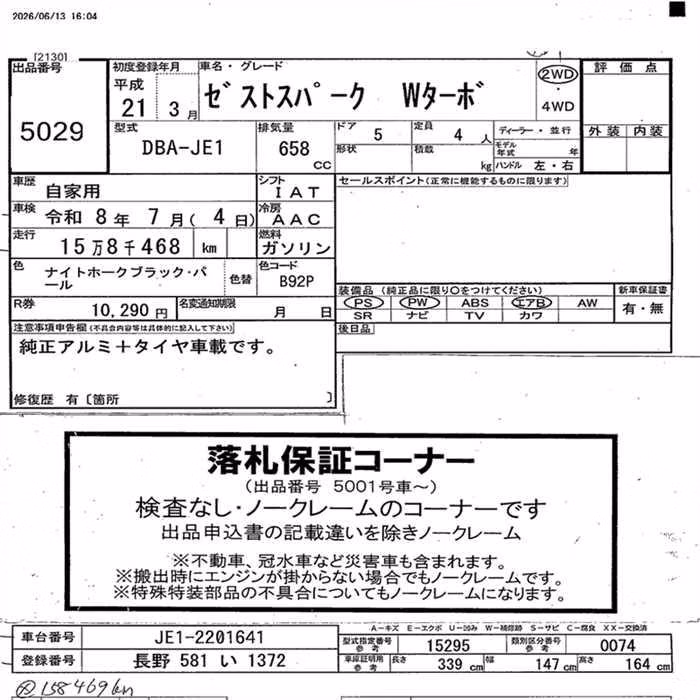 2026/06/13 16:04
[2130]
出品番号
5029
初度登録年月
平成
21 3 月
車名・グレード
ｾﾞｽﾄｽﾊﾟｰｸ Wﾀｰﾎﾞ
2WD
・
4WD
評価点
外装 内装
型式
DBA-JE1
排気量
658 CC
ドア 5
定員 4 人
ディーラー・並行
形状
積載 kg
モデル年式 年
ハンドル 左・右
車歴 自家用
シフト IAT
セールスポイント(正常に機能するものに限ります)
車検 令和 8年 7月( 4日)
冷房 AAC
走行 15万8千468 km
燃料 ガソリン
色 ナイトホークブラック・パール
色替
色コード B92P
装備品(純正品に限り○をつけてください)
新車保証書
PS PW ABS エアB AW
SR ナビ TV カワ
有・無
R券 10,290 円
名変通知期限 月 日
後日品
注意事項申告欄(不具合内容等は具体的に記入して下さい)
純正アルミ＋タイヤ車載です。
修復歴 有〔箇所 〕
落札保証コーナー
(出品番号 5001号車～)
検査なし・ノークレームのコーナーです
出品申込書の記載違いを除きノークレーム
※不動車、冠水車など災害車も含まれます。
※搬出時にエンジンが掛からない場合でもノークレームです。
※特殊特装部品の不具合についてもノークレームになります。
A－キズ E－エクボ U－凹み W－補修跡 S－サビ C－腐食 XX－交換済
車台番号 JE1-2201641
型式指定番号 参考 15295
類別区分番号 参考 0074
登録番号 長野 581 い 1372
車庫証明用 参考 長さ 339 cm 幅 147 cm 高さ 164 cm
158469km